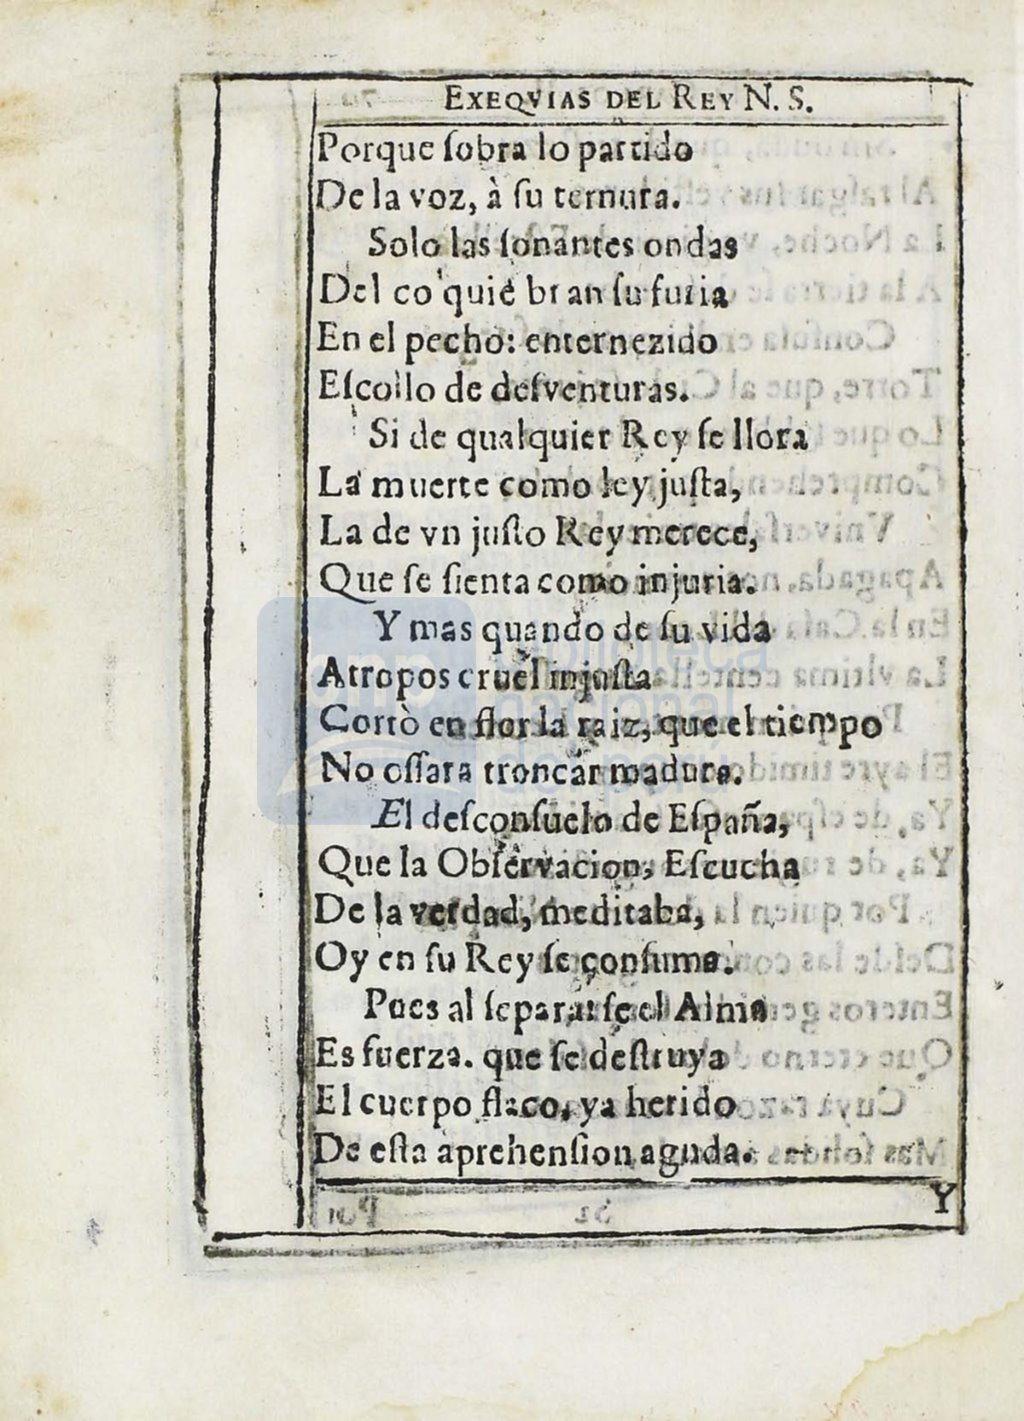 EXEQVIAS DEL REY N. S.
Porque ſobra lo partido
De la voz, à ſu ternura.
Solo las ſonantes ondas
Del co quié bran ſu furia
En el pecho: enternezido
Eſcollo de deſventuras.
Si de qualquier Rey ſe llora
La muerte como ley juſta,
La de vn juſto Rey merece,
Que ſe ſienta como injuria.
Y mas quando de ſu vida
Atropos cruel injuſta
Cortò en flor la raiz, que el tiempo
No oſſara troncar madura.
El deſconſuelo de Eſpaña,
Que la Obſervacion, Eſcucha
De la verdad, meditaba,
Oy en ſu Rey ſe conſuma.
Pues al ſepararſe el Alma
Es fuerza. que ſe deſtruya
El cuerpo flaco, ya herido
De eſta aprehenſion aguda.
Y